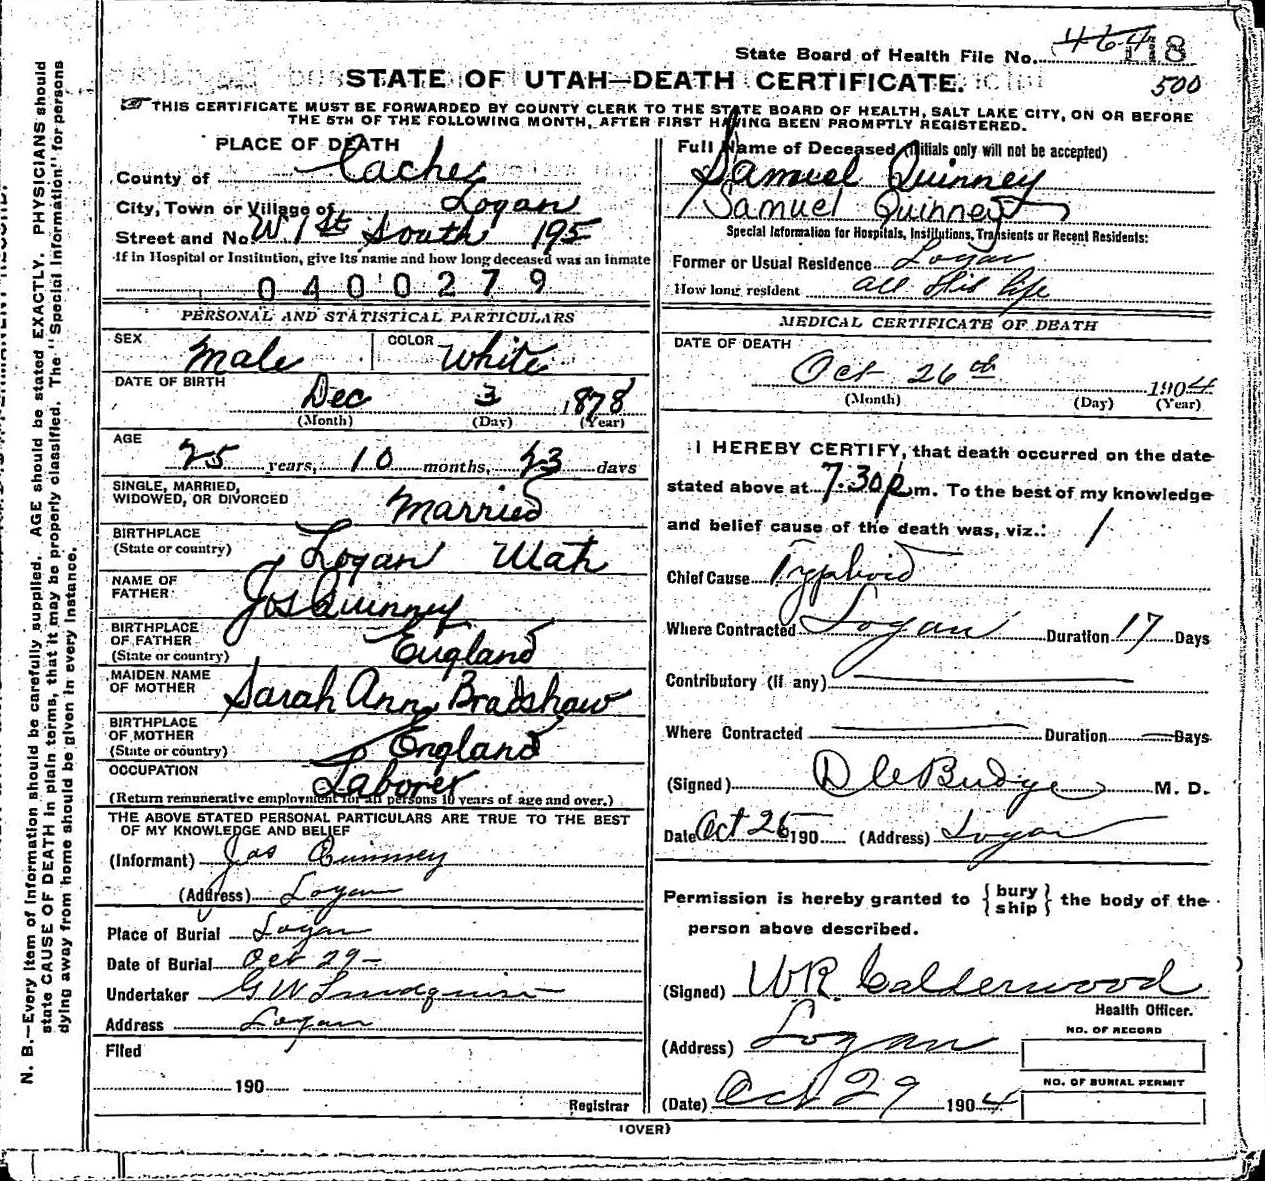 State Board of Health File No. 464 118
STATE OF UTAH—DEATH CERTIFICATE.
500
THIS CERTIFICATE MUST BE FORWARDED BY COUNTY CLERK TO THE STATE BOARD OF HEALTH, SALT LAKE CITY, ON OR BEFORE
THE 5TH OF THE FOLLOWING MONTH, AFTER FIRST HAVING BEEN PROMPTLY REGISTERED.
PLACE OF DEATH
County of Cache
City, Town or Village of Logan
Street and No. W 1st South 195
If in Hospital or Institution, give its name and how long deceased was an inmate
0400279
PERSONAL AND STATISTICAL PARTICULARS
SEX Male COLOR White
DATE OF BIRTH Dec 3 1878
(Month) (Day) (Year)
AGE 25 years, 10 months, 23 days
SINGLE, MARRIED,
WIDOWED, OR DIVORCED Married
BIRTHPLACE
(State or country) Logan Utah
NAME OF
FATHER Jos Quinney
BIRTHPLACE
OF FATHER
(State or country) England
MAIDEN NAME
OF MOTHER Sarah Ann Bradshaw
BIRTHPLACE
OF MOTHER
(State or country) England
OCCUPATION Laborer
(Return remunerative employment for all persons 10 years of age and over.)
THE ABOVE STATED PERSONAL PARTICULARS ARE TRUE TO THE BEST
OF MY KNOWLEDGE AND BELIEF
(Informant) Jos Quinney
(Address) Logan
Place of Burial Logan
Date of Burial Oct 29—
Undertaker G W Lindquist
Address Logan
Filed
190
Registrar
Full Name of Deceased (Initials only will not be accepted)
Samuel Quinney
Samuel Quinney
Special Information for Hospitals, Institutions, Transients or Recent Residents:
Former or Usual Residence Logan
How long resident all His life
MEDICAL CERTIFICATE OF DEATH
DATE OF DEATH
Oct 26th 1904
(Month) (Day) (Year)
I HEREBY CERTIFY, that death occurred on the date
stated above at 7.30 p.m. To the best of my knowledge
and belief cause of the death was, viz.: 1
Chief Cause Typhoid
Where Contracted Logan Duration 17 Days
Contributory (if any)
Where Contracted Duration Days
(Signed) D C Budge M. D.
Date Oct 26 190 (Address) Logan
Permission is hereby granted to {bury ship} the body of the
person above described.
(Signed) WR Calderwood
Health Officer.
(Address) Logan
NO. OF RECORD
NO. OF BURIAL PERMIT
(Date) Oct 29 1904
(OVER)
N. B.—Every item of information should be carefully supplied. AGE should be stated EXACTLY. PHYSICIANS should
state CAUSE OF DEATH in plain terms, that it may be properly classified. The "Special Information" for persons
dying away from home should be given in every instance.